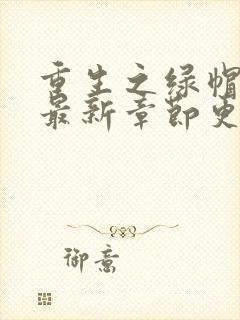 重生之绿帽
最新章节更
御意